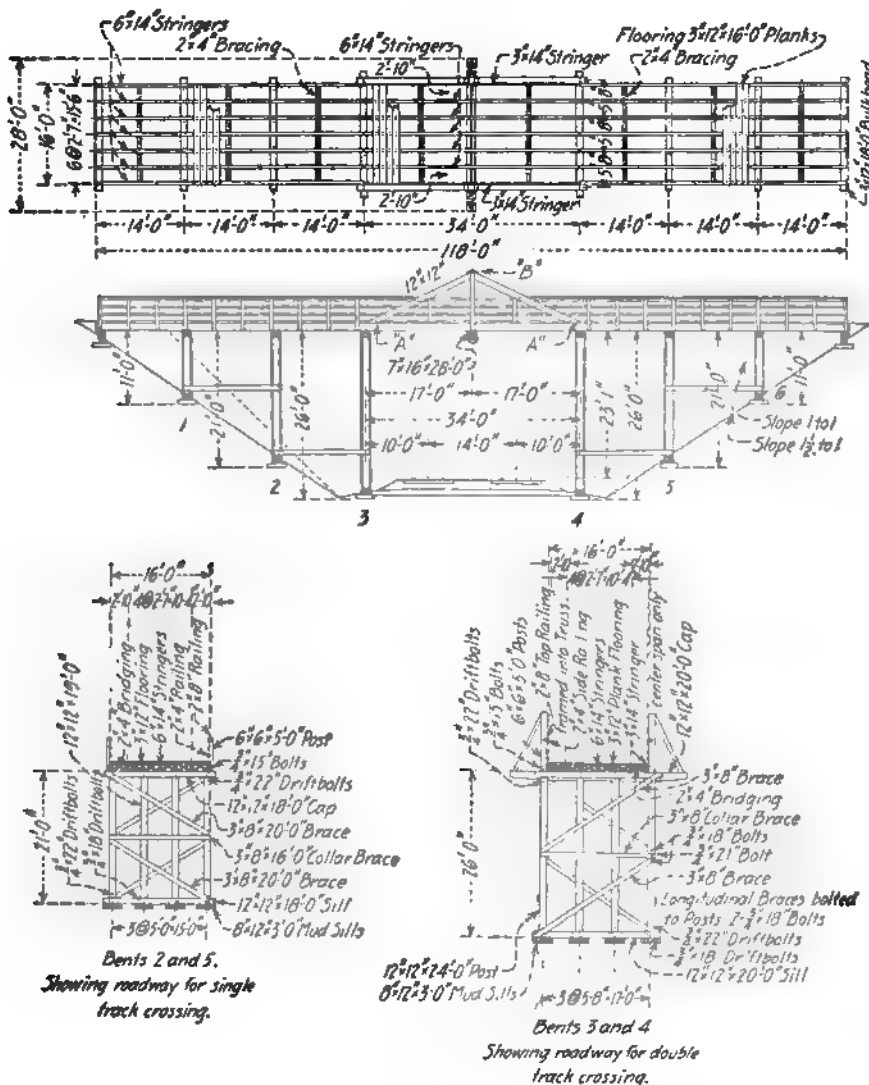 6"×14" Stringers
2"×4" Bracing
6"×14" Stringers
3"×14" Stringer
Flooring 3"×12"×16'-0" Planks
2"×4" Bracing
2'-10"
28'-0"
16'-0"
6@2'-7"=15'-6"
5'-8" 5'-8" 5'-8"
2'-10"
3"×14" Stringer
3"×12"×18'-0" Bulkhead
14'-0" 14'-0" 14'-0" 34'-0" 14'-0" 14'-0" 14'-0"
118'-0"
12"×12"
"B"
"A" "A"
7"×16"×28'-0"
17'-0" 17'-0"
34'-0"
10'-0" 14'-0" 10'-0"
11'-0"
21'-0"
26'-0"
23'-1"
26'-0"
21'-0"
11'-0"
Slope 1 to 1
Slope 1½ to 1
1
2
3
4
5
6
16'-0"
2"×4" Bridging
3"×12" Flooring
6"×14" Stringers
2"×4" Railing
2"×8" Railing
12"×12"×19'-0"
¾"×22" Driftbolts
¾"×18" Driftbolts
21'-0"
6"×6"×5'-0" Post
¾"×15" Bolts
¾"×22" Driftbolts
12"×12"×18'-0" Cap
3"×8"×20'-0" Brace
3"×8"×16'-0" Collar Brace
3"×8"×20'-0" Brace
12"×12"×18'-0" Sill
8"×12"×3'-0" Mud Sills
3@5'-0"=15'-0"
Bents 2 and 5.
Showing roadway for single
track crossing.
16'-0"
¾"×22" Driftbolts
¾"×15" Bolts
6"×6"×5'-0" Posts
2"×8" Top Railing
framed into Truss.
2"×4" Side Railing
6"×14" Stringers
3"×12" Plank Flooring
3"×14" Stringer
center span only
12"×12"×20'-0" Cap
26'-0"
3"×8" Brace
2"×4" Bridging
3"×8" Collar Brace
¾"×18" Bolts
¾"×21" Bolt
3"×8" Brace
Longitudinal Braces bolted
to Posts 2-¾"×18" Bolts
¾"×22" Driftbolts
¾"×18" Driftbolts
12"×12"×20'-0" Sill
12"×12"×24'-0" Post
8"×12"×3'-0" Mud Sills
3@5'-8"=17'-0"
Bents 3 and 4
Showing roadway for double
track crossing.